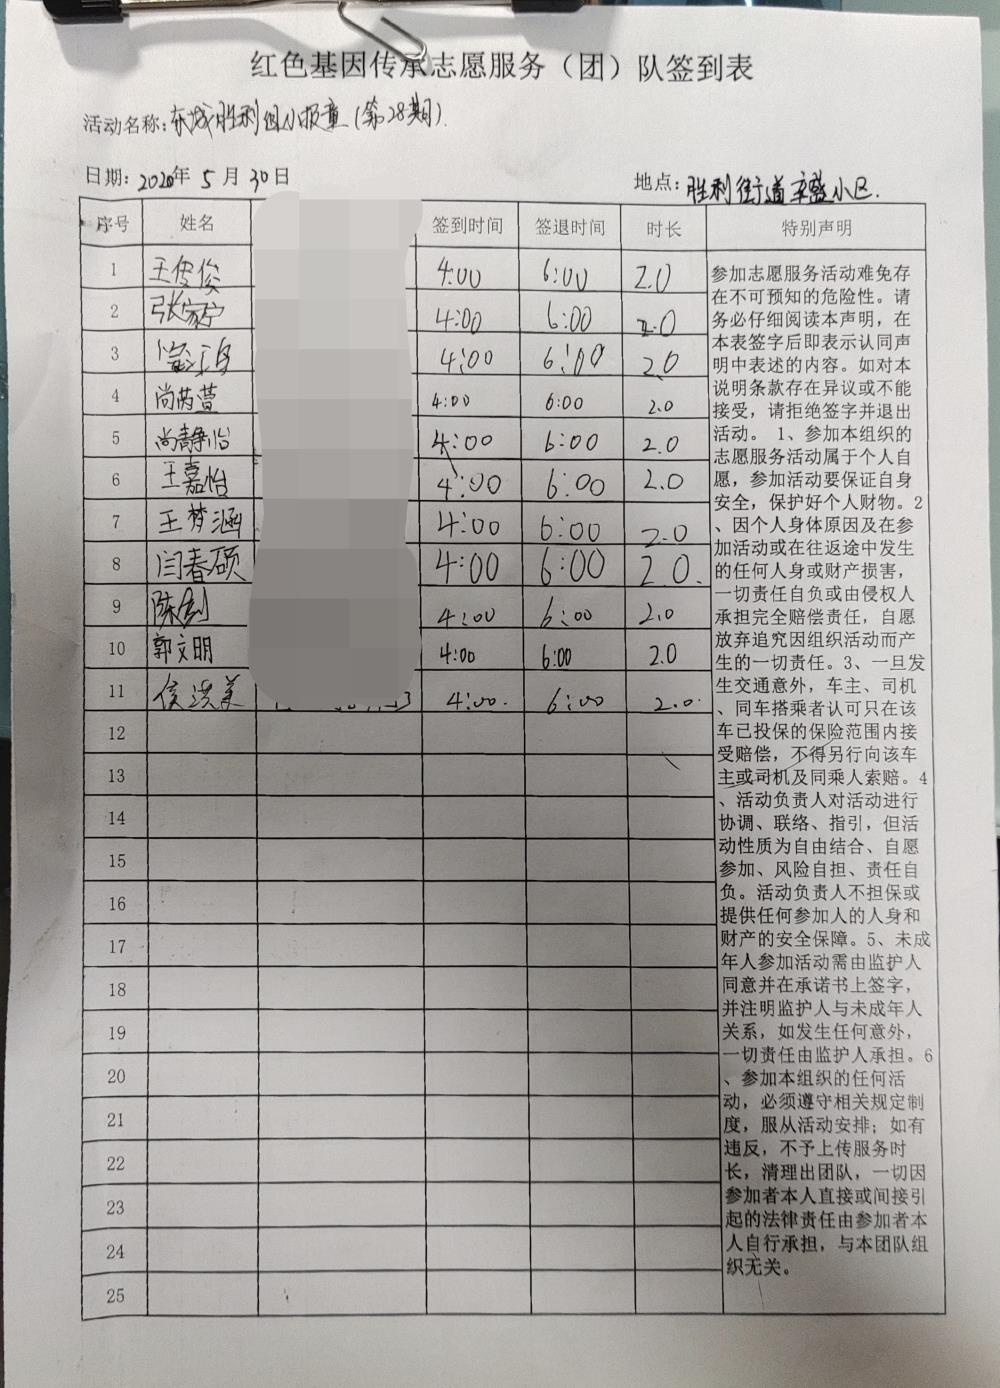 红色基因传承志愿服务（团）队签到表
活动名称：东城胜利小报童（第28期）.
日期：2020年 5 月 30 日
地点：胜利街道 小区.
序号 姓名 签到时间 签退时间 时长 特别声明
1 王俊俊 4:00 6:00 2.0
2 张家宁 4:00 6:00 2.0
3 4:00 6:00 2.0
4 尚芮萱 4:00 6:00 2.0
5 尚静怡 4:00 6:00 2.0
6 王嘉怡 4:00 6:00 2.0
7 王梦涵 4:00 6:00 2.0
8 闫春硕 4:00 6:00 2.0.
9 陈剑 4:00 6:00 2.0
10 郭文明 4:00 6:00 2.0
11 侯洪美 4:00. 6:00 2.0.
12
13
14
15
16
17
18
19
20
21
22
23
24
25
参加志愿服务活动难免存
在不可预知的危险性。请
务必仔细阅读本声明，在
本表签字后即表示认同声
明中表述的内容。如对本
说明条款存在异议或不能
接受，请拒绝签字并退出
活动。 1、参加本组织的
志愿服务活动属于个人自
愿，参加活动要保证自身
安全，保护好个人财物。2
、因个人身体原因及在参
加活动或在往返途中发生
的任何人身或财产损害，
一切责任自负或由侵权人
承担完全赔偿责任，自愿
放弃追究因组织活动而产
生的一切责任。3、一旦发
生交通意外，车主、司机
、同车搭乘者认可只在该
车已投保的保险范围内接
受赔偿，不得另行向该车
主或司机及同乘人索赔。4
、活动负责人对活动进行
协调、联络、指引，但活
动性质为自由结合、自愿
参加、风险自担、责任自
负。活动负责人不担保或
提供任何参加人的人身和
财产的安全保障。5、未成
年人参加活动需由监护人
同意并在承诺书上签字，
并注明监护人与未成年人
关系，如发生任何意外，
一切责任由监护人承担。6
、参加本组织的任何活
动，必须遵守相关规定制
度，服从活动安排；如有
违反，不予上传服务时
长，清理出团队，一切因
参加者本人直接或间接引
起的法律责任由参加者本
人自行承担，与本团队组
织无关。